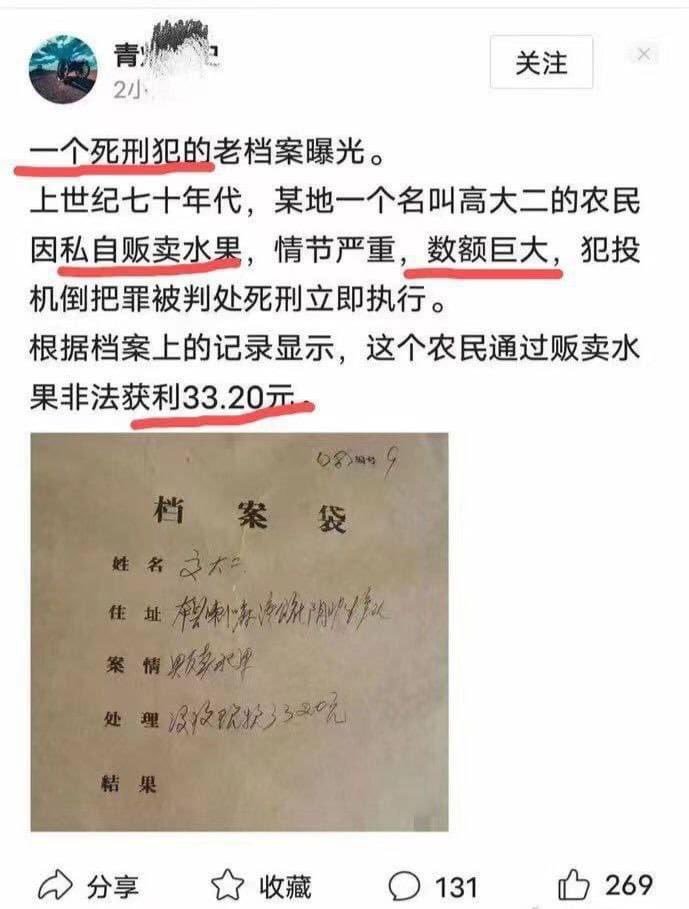 青
关注
2小
一个死刑犯的老档案曝光。
上世纪七十年代，某地一个名叫高大二的农民
因私自贩卖水果，情节严重，数额巨大，犯投
机倒把罪被判处死刑立即执行。
根据档案上的记录显示，这个农民通过贩卖水
果非法获利33.20元。
编号 9
档案袋
姓名 大二
住址
案情 贩卖水果
处理 没收现款33.20元
结果
分享
收藏
131
269